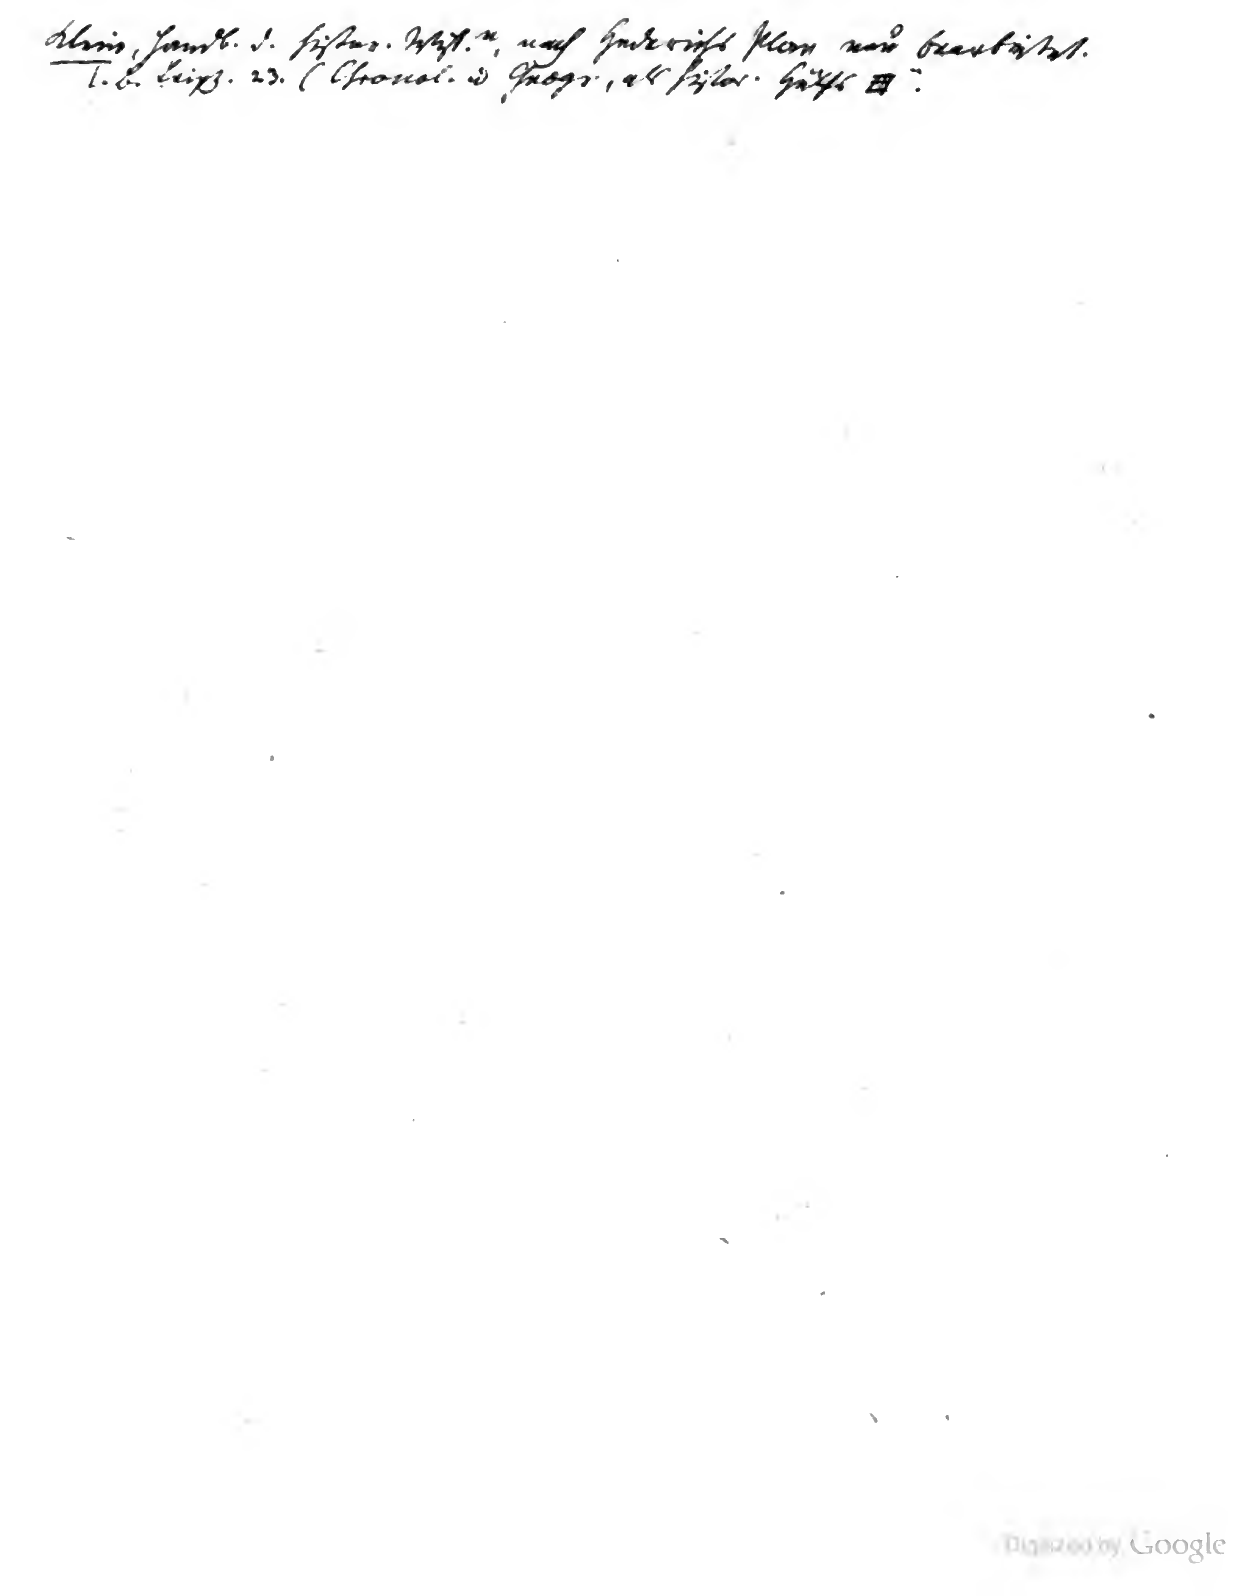 Klein, Handb. d. histor. Wiss.n, nach Hederichs Plan neu bearbeitet.
1. B. Leipz. 23. (Chronol. u Geogr., als histor. Hülfs
Digitized by Google